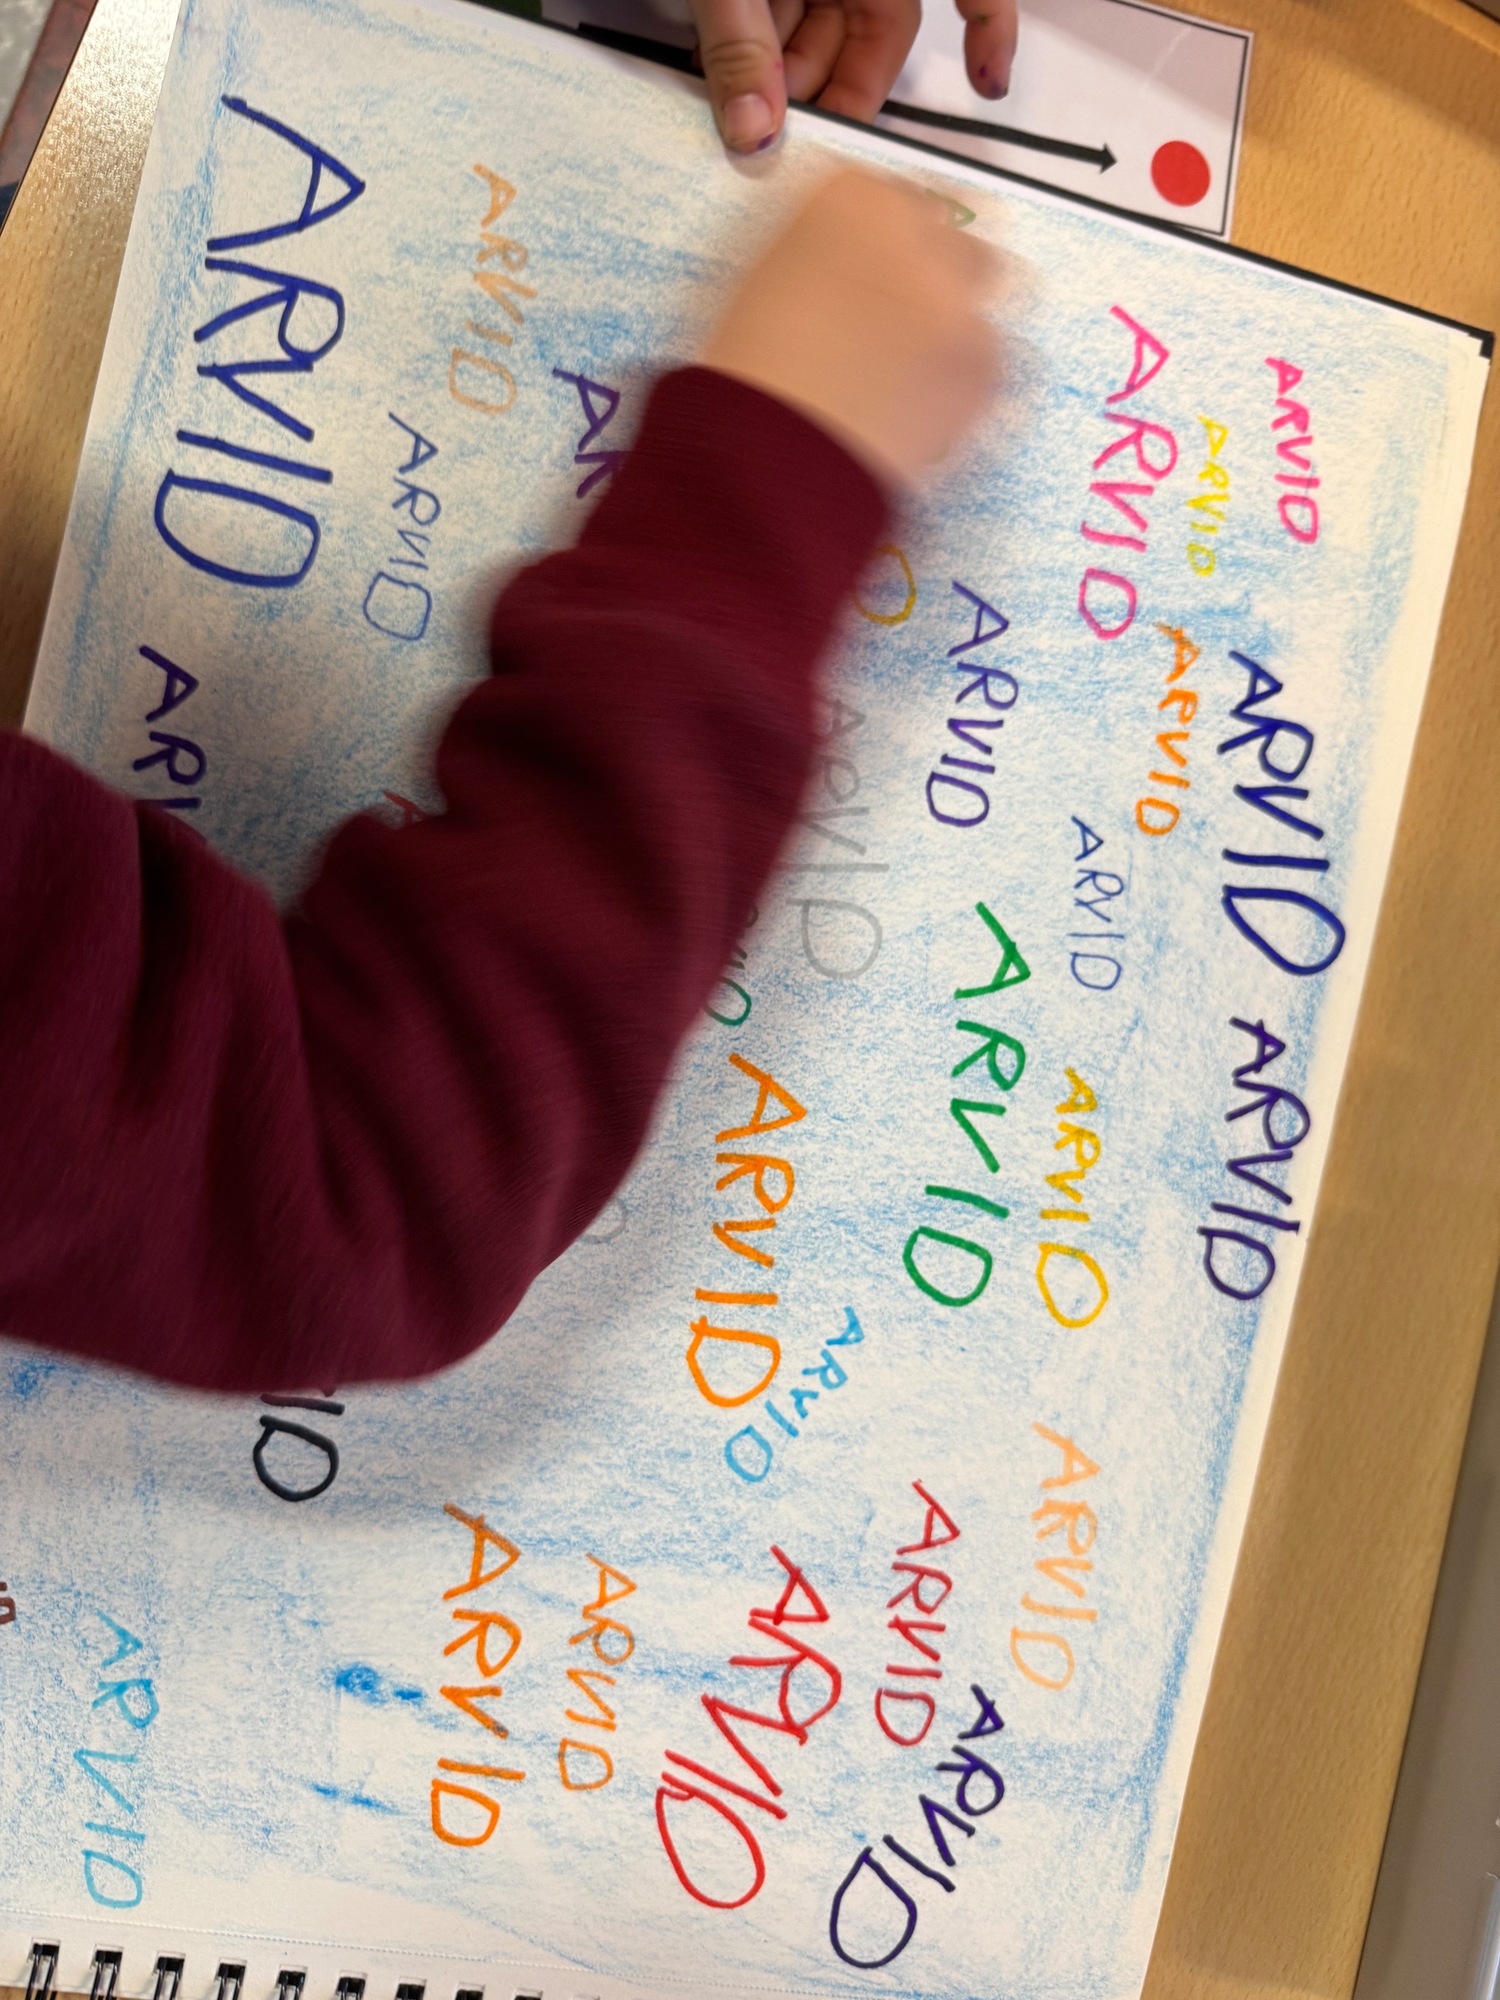 ARVID
ARVID
ARVID
ARVID
ARVID
ARVID
ARVID
ARVID
ARVID
ARVID
ARVID
ARVID
ARVID
ARVID
ARVID
ARVID
ARVID
ARVID
ARVID
ARVID
ARVID
ARVID
ARVID